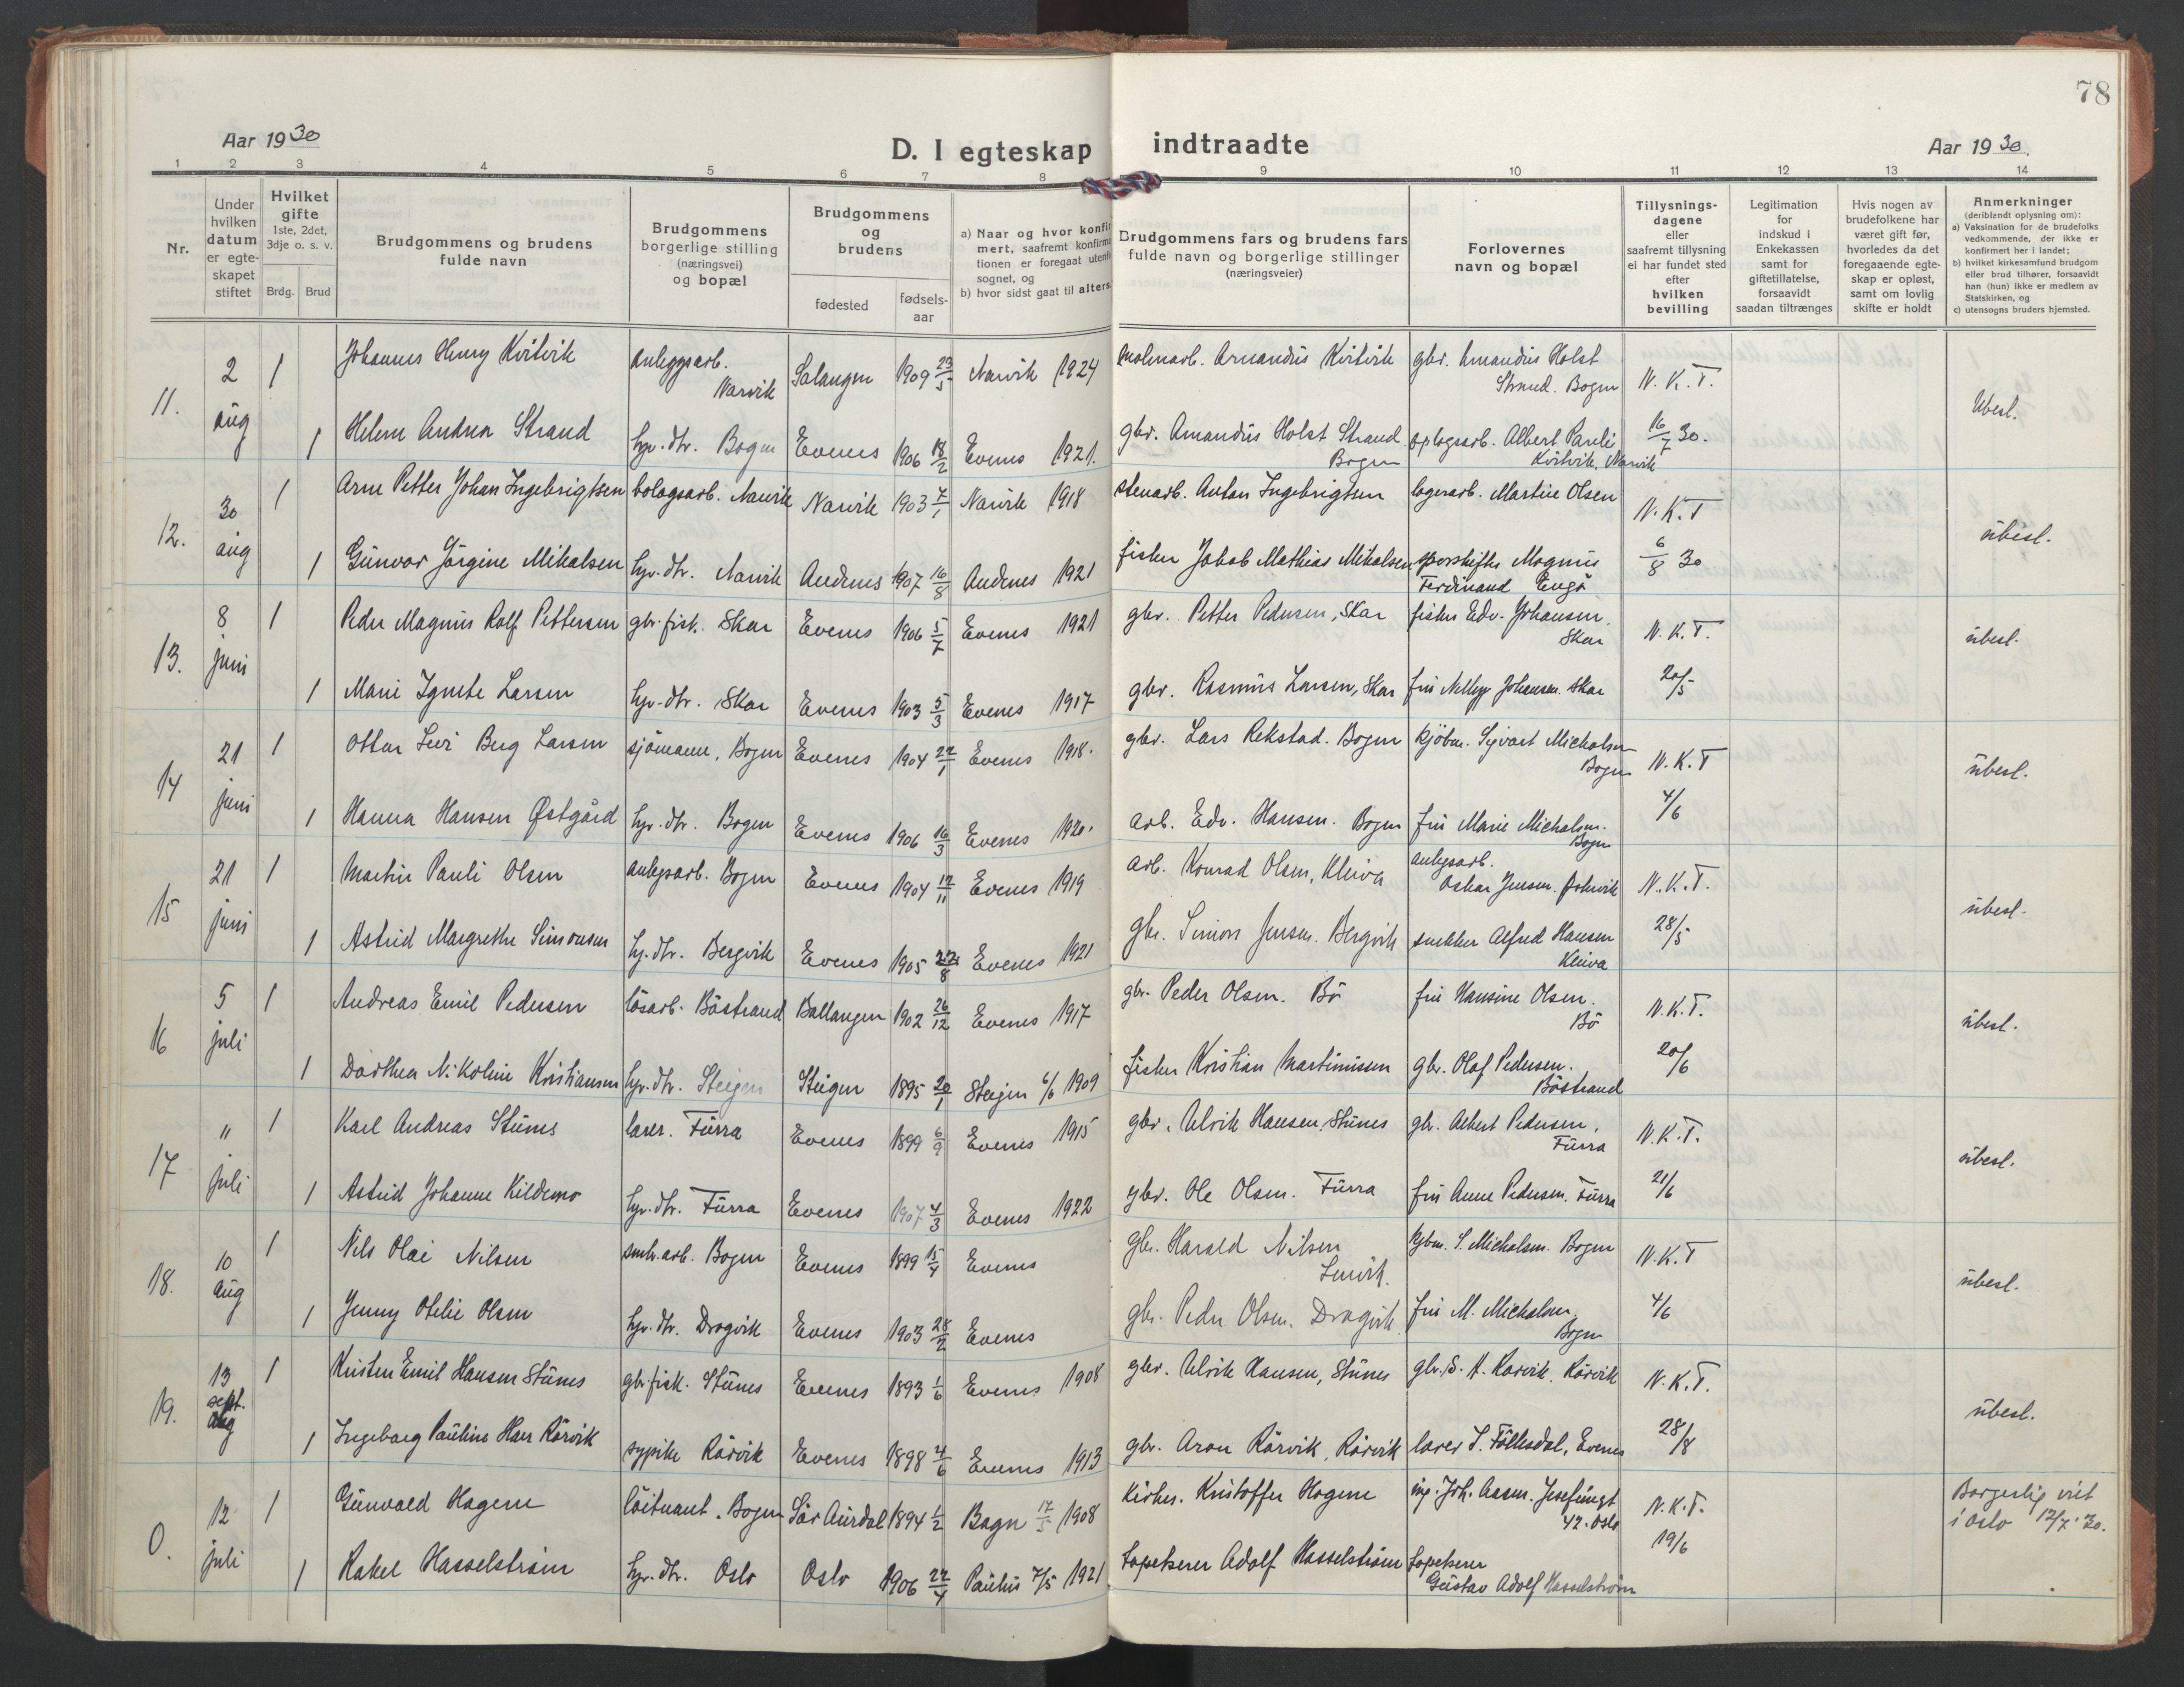 78
Aar 1930
D. I egteskap indtraadte
Aar 1930.
1 2 3 4 5 6 7 8 9 10 11 12 13 14
Nr.
Under hvilken datum er egte-skapet stiftet
Hvilket gifte 1ste, 2det, 3dje o. s. v.
Brdg. Brud
Brudgommens og brudens fulde navn
Brudgommens borgerlige stilling (næringsvei) og bopæl
Brudgommens og brudens
fødested
fødsels-aar
a) Naar og hvor konfi
mert, saafremt konfirma
tionen er foregaat utenfo
sognet, og
b) hvor sidst gaat til alters
Brudgommens fars og brudens fars fulde navn og borgerlige stillinger (næringsveier)
Forlovernes navn og bopæl
Tillysnings-dagene eller saafremt tillysning ei har fundet sted efter hvilken bevilling
Legitimation for indskud i Enkekassen samt for giftetillatelse, forsaavidt saadan tiltrænges
Hvis nogen av brudefolkene har været gift før, hvorledes da det foregaaende egte-skap er opløst, samt om lovlig skifte er holdt
Anmerkninger
(deriblandt oplysning om):
a) Vaksination for de brudefolks vedkommende, der ikke er konfirmert her i landet;
b) hvilket kirkesamfund brudgom eller brud tilhører, forsaavidt han (hun) ikke er medlem av Statskirken, og
c) utensogns bruders hjemsted.
11. 2 aug 1 Johannes Henry Kvitvik anleggsarb. Narvik Salangen 1909 23/5 Narvik 1924 Amandus Kvitvik gbr. Amandus Holst Strand. Bogen N. K. T. Ubesl.
1 Helene Andrea Strand hv. dtr. Bogen Evenes 1906 18/2 Evenes 1921. gbr. Amandus Holst Strand Bogen Albert Pauli Kvitvik, Narvik 16/7 30.
12. 30 aug 1 Arne Petter Johan Ingebrigtsen bolagsarb. Narvik Narvik 1903 7/1 Narvik 1918 stenarb. Anton Ingebrigtsen lagerarb. Martin Olsen N. K. T ubesl.
1 Gunvor Jörgine Mikalsen hv. dtr. Narvik Andenes 1907 16/8 Andenes 1921 fisker Jakob Mathias Mikalsen sporskifter Magnus Ferdinand Engö 6/8 30
13. 8 juni 1 Peder Magnus Rolf Pettersen gbr. fisk. Skar Evenes 1906 5/7 Evenes 1921 gbr. Petter Pedersen, Skar fisker Edv. Johansen. Skar N. K. T. ubesl.
1 Marie Agnete Larsen hv. dtr. Skar Evenes 1903 5/3 Evenes 1917 gbr. Rasmus Larsen, Skar fru Nelly Johansen. Skar 20/5
14 21 juni 1 Ottar Levi Berg Larsen sjömann, Bogen Evenes 1904 22/1 Evenes 1918. gbr. Lars Rekstad. Bogen kjöbm. Sigvart Michalsen Bogen N. K. T ubesl.
1 Hanna Hansen Østgård hv. dtr. Bogen Evenes 1906 16/3 Evenes 1920. arb. Edv. Hansen. Bogen fru Marie Michalsen. Bogen 4/6
15 21 juni 1 Martin Pauli Olsen anlegsarb. Bogen Evenes 1904 12/11 Evenes 1919 arb. Konrad Olsen, Kleiva anlegsarb. Oskar Jensen. N. K. T. ubesl.
1 Astrid Margrethe Simonsen hj. dtr. Bergvik Evenes 1905 22/8 Evenes 1921 gbr. Simon Jensen. Bergvik snekker Alfred Hansen Kleiva 28/5
16 5 juli 1 Andreas Emil Pedersen lösarb. Böstrand Ballangen 1902 26/12 Evenes 1917 gbr. Peder Olsen. Bö fru Hansine Olsen. Bö N. K. T. ubesl.
1 Dorthea Nikoline Kristiansen hv. dtr. Steigen Steigen 1895 20/1 Steigen 6/6 1909 fisker Kristian Martinussen gbr. Olaf Pedersen. Böstrand 20/6
17 " juli 1 Karl Andreas Stunes lærer. Furra Evenes 1899 6/9 Evenes 1915 gbr. Ulrik Hansen, Stunes gbr. Albert Pedersen, Furra N. K. T. ubesl.
1 Astrid Johanne Kildemo hv. dtr. Furra Evenes 1907 4/3 Evenes 1922 gbr. Ole Olsen. Furra fru Anne Pedersen. Furra 21/6
18. 10 aug 1 Nils Olai Nilsen Bogen Evenes 1899 15/4 Evenes gbr. Harald Nilsen Lenvik. kjbm. S. Michalsen. Bogen N. K. T ubesl.
1 Jenny Otilie Olsen hv. dtr. Dragvik Evenes 1903 28/2 Evenes gbr. Peder Olsen. Dragvik fru M. Michalsen. Bogen 4/6
19. 13 sept. aug 1 Kristen Emil Hansen Stunes gbr. fisk. Stunes Evenes 1893 1/6 Evenes 1908 gbr. Ulrik Hansen, Stunes gbr. S. A. Rörvik. Rörvik N. K. T. ubesl.
1 Ingeborg Pauline Rörvik sypike Rörvik Evenes 1898 4/6 Evenes 1913 gbr. Aron Rörvik, Rörvik lærer S. Föllesdal, Evenes 28/8
0. 12 juli 1 Gunvald Hagene löitnant. Bogen Sör Aurdal 1894 1/2 Bagn 17/5 1908 kirkes. Kristoffer Hagene ing. Joh. Aasen. Josefinegt 42. Oslo N. K. T. Borgerlig viet i Oslo 12/7. 30.
1 Rakel Hasselström hv. dtr. Oslo Oslo 1906 22/4 Paulus 7/5 1921 tapetserer Adolf Hasselström tapetserer Gustav Adolf Hasselström 19/6